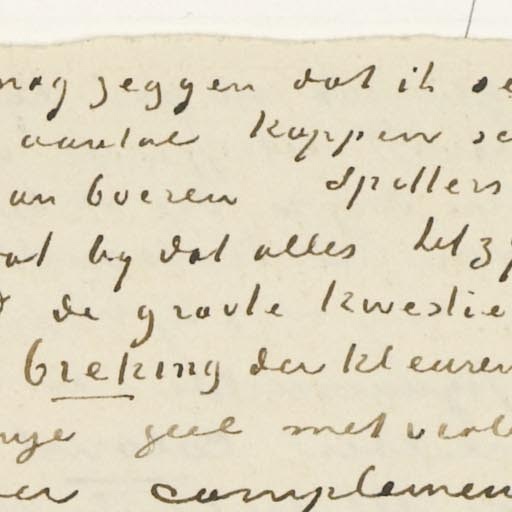 nog zeggen dat ik
aantal koppen
an boeren Spitters
by dat alles het zy
de groote kwestie
breking der kleuren
geel met viole
complemen